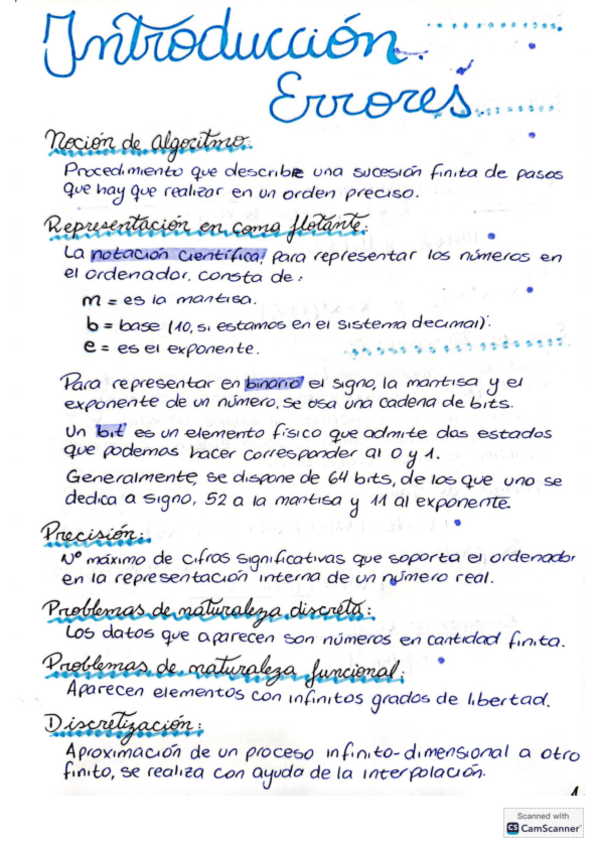 Introducción.
Errores
Noción de algoritmo:
Procedimiento que describe una sucesión finita de pasos
que hay que realizar en un orden preciso.
Representación en coma flotante:
La notación científica, para representar los números en
el ordenador, consta de:
m = es la mantisa.
b = base (10, si estamos en el sistema decimal).
e = es el exponente.
Para representar en binario el signo, la mantisa y el
exponente de un número, se usa una cadena de bits.
Un bit es un elemento físico que admite dos estados
que podemos hacer corresponder al 0 y 1.
Generalmente, se dispone de 64 bits, de los que uno se
dedica a signo, 52 a la mantisa y 11 al exponente.
Precisión:
Nº máximo de cifras significativas que soporta el ordenador
en la representación interna de un número real.
Problemas de naturaleza discreta:
Los datos que aparecen son números en cantidad finita.
Problemas de naturaleza funcional:
Aparecen elementos con infinitos grados de libertad.
Discretización:
Aproximación de un proceso infinito-dimensional a otro
finito, se realiza con ayuda de la interpolación.
1
Scanned with
CS CamScanner